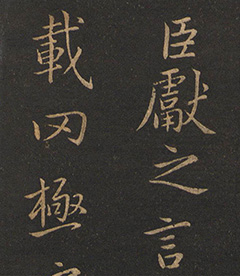 臣獻之言
載罔極